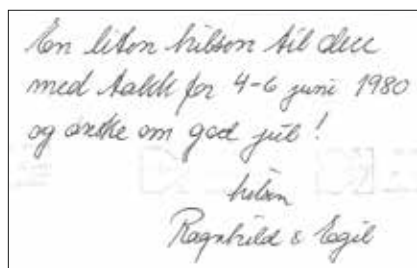 En liten hilsen til dere
med takk for 4-6 juni 1980
og ønske om god jul!
hilsen
Ragnhild & Egil